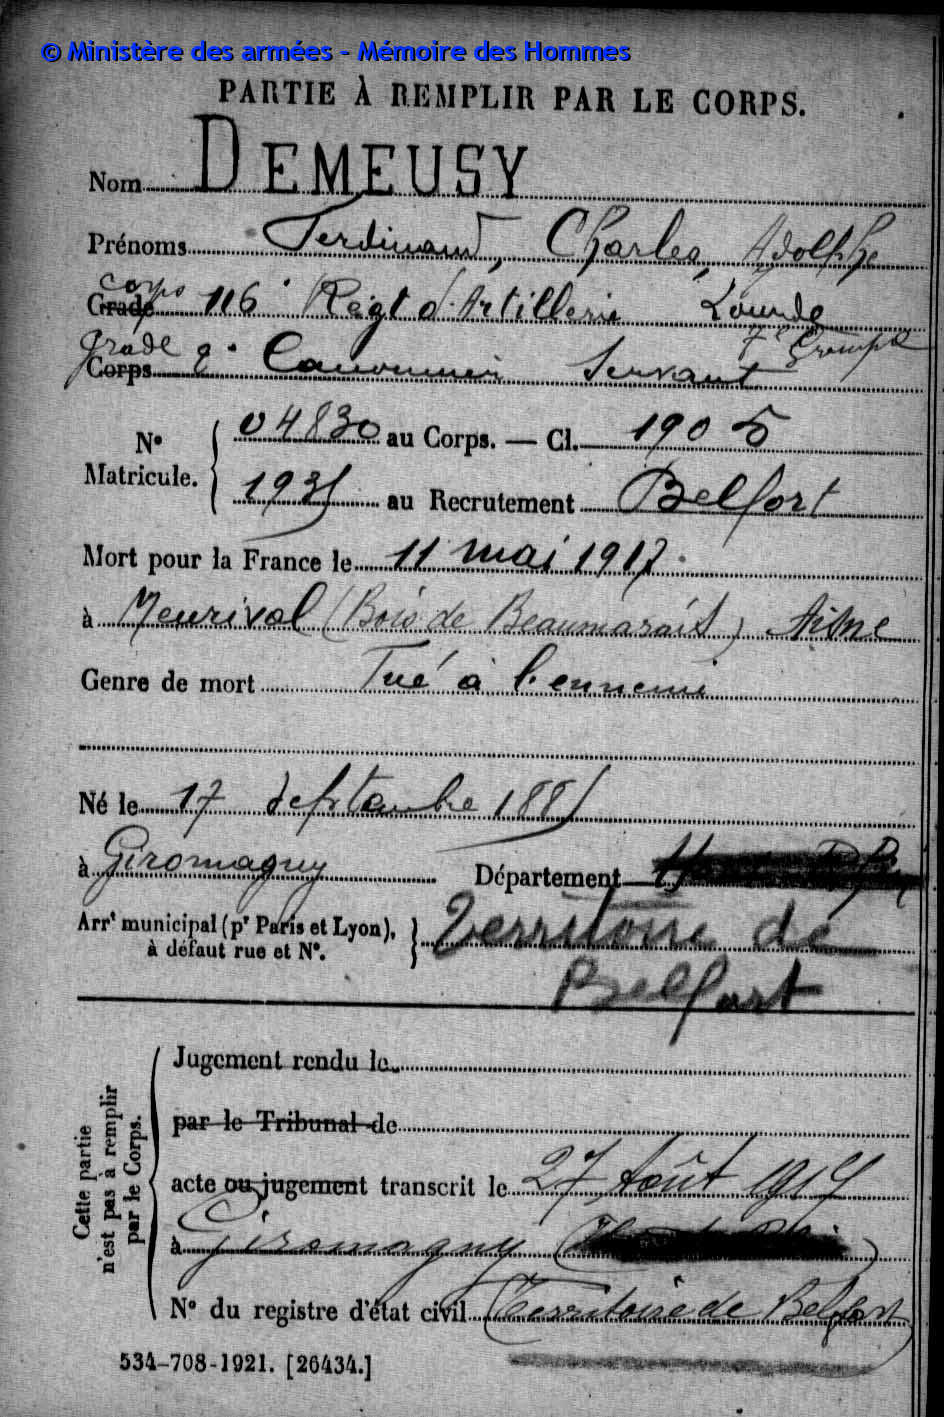 © Ministère des armées - Mémoire des Hommes
PARTIE À REMPLIR PAR LE CORPS.
Nom DEMEUSY
Prénoms Ferdinand, Charles, Adolphe
corps
Grade 116e Régt d'Artillerie Lourde
7e Groupe
grade
Corps 2e Canonnier Servant
No Matricule. 04830 au Corps. — Cl. 1905
1935 au Recrutement Belfort
Mort pour la France le 11 mai 1917
à Meurival (Bois de Beaumarais) Aisne
Genre de mort Tué à l'ennemi
Né le 17 septembre 1885
à Giromagny Département
Arrt municipal (pr Paris et Lyon), à défaut rue et No. Territoire de
Belfort
Cette partie n'est pas à remplir par le Corps.
Jugement rendu le
par le Tribunal de
acte ou jugement transcrit le 27 Août
à Giromagny
No du registre d'état civil (Territoire de Belfort)
534-708-1921. [26434.]